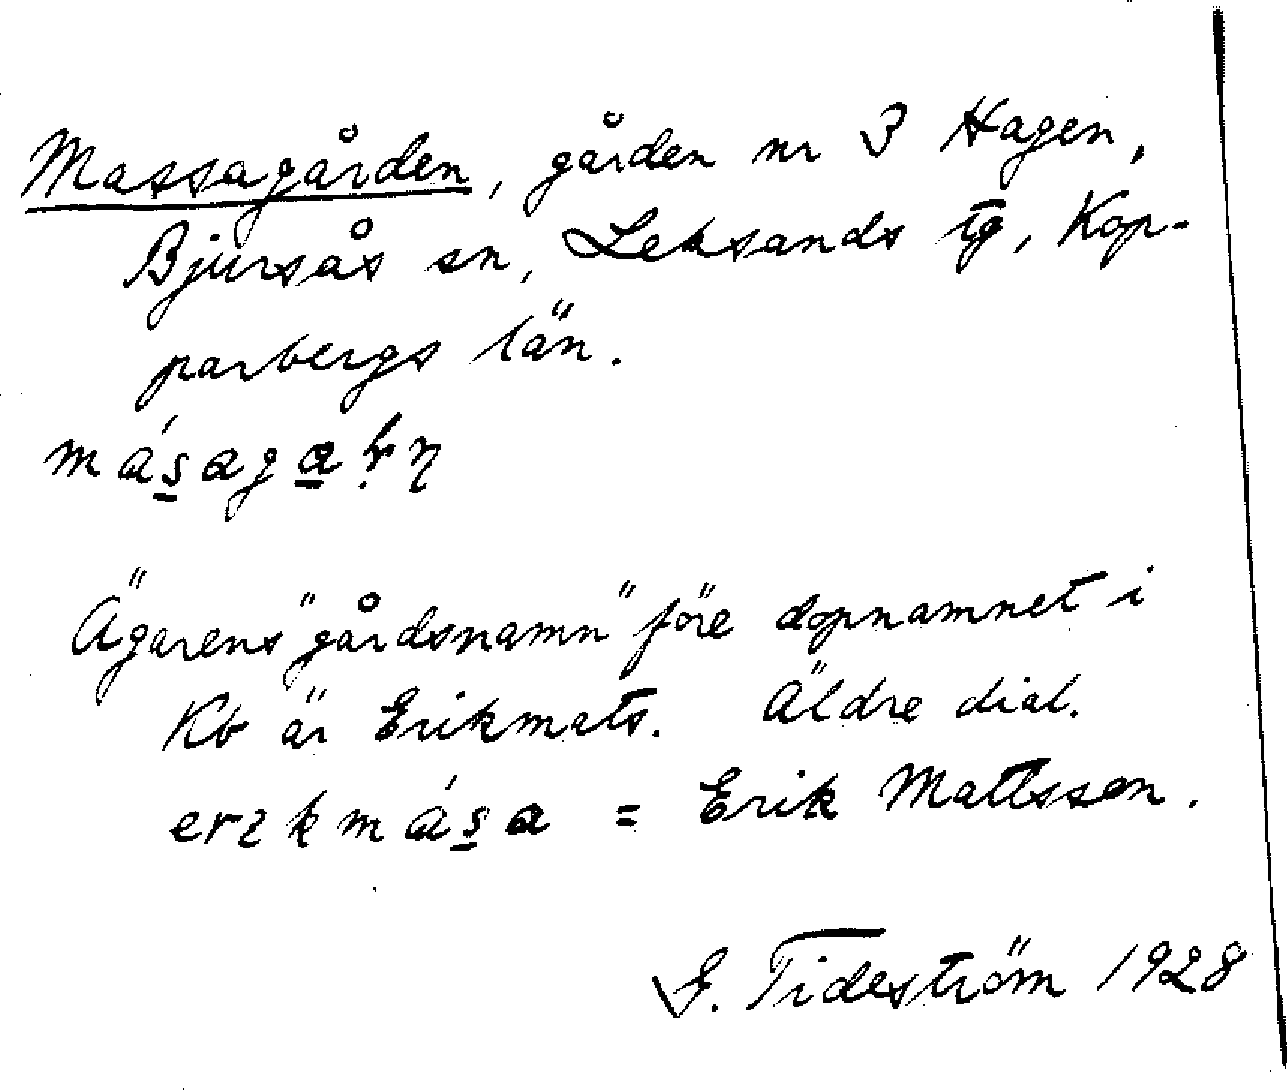 Massagården, gården nr 3 Hagen,
Bjursås sn, Leksands tg, Kop-
parbergs län.
Ägarens "gårdsnamn" före dopnamnet i
Kb är Erikmats. Äldre dial.
= Erik Mattsson.
G. Tideström 1928